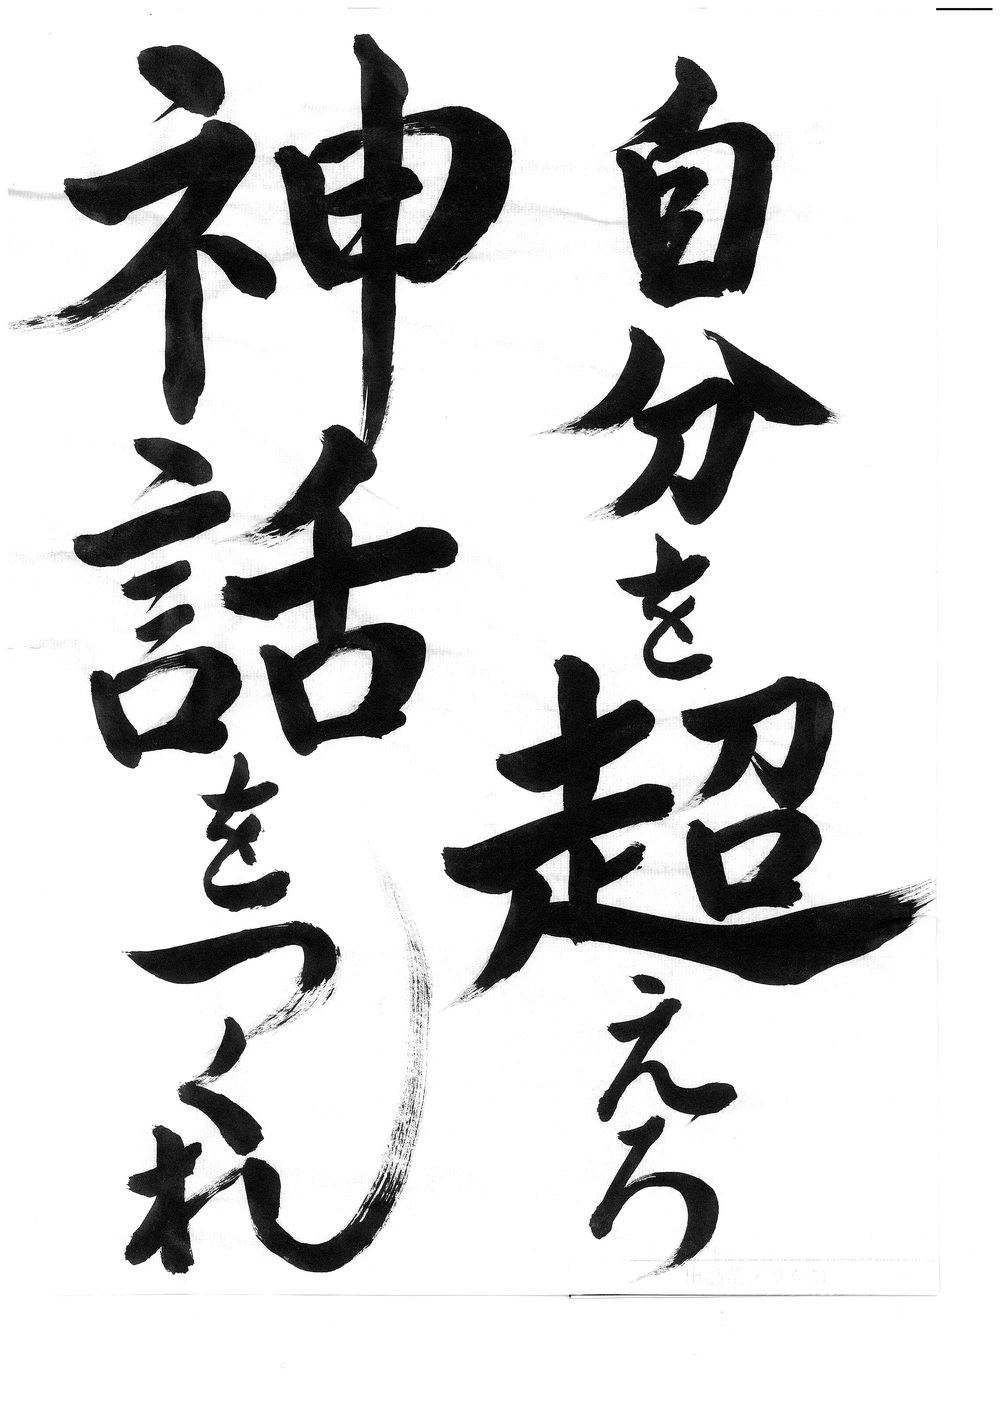 自分を超えろ
神話をつくれ